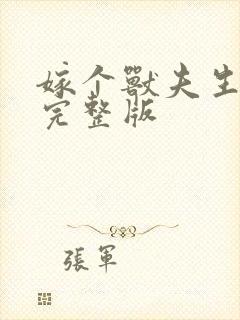 嫁个獸夫生
完整版
張軍